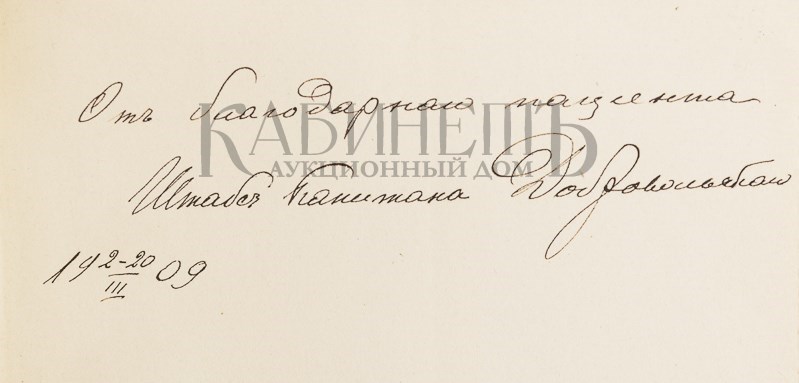 Отъ благодарнаго пацiента
КАБИНЕТЪ
АУКЦИОННЫЙ ДОМ
Штабсъ Капитана Добровольскаго
19 2-20/III 09